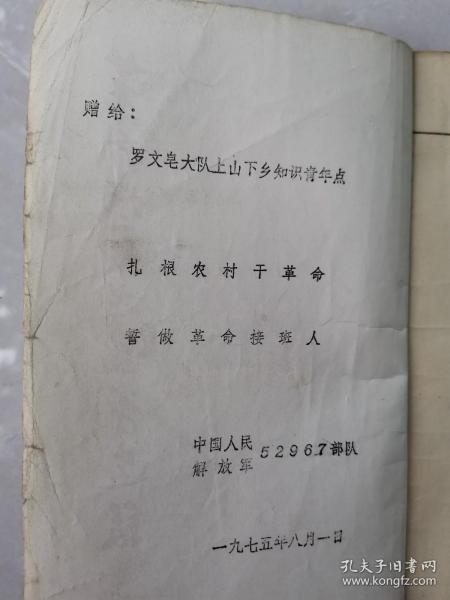 赠给：
罗文皂大队上山下乡知识青年点
扎根农村干革命
誓做革命接班人
中国人民
解放军
52967部队
一九七五年八月一日
孔夫子旧书网
www.kongfz.com